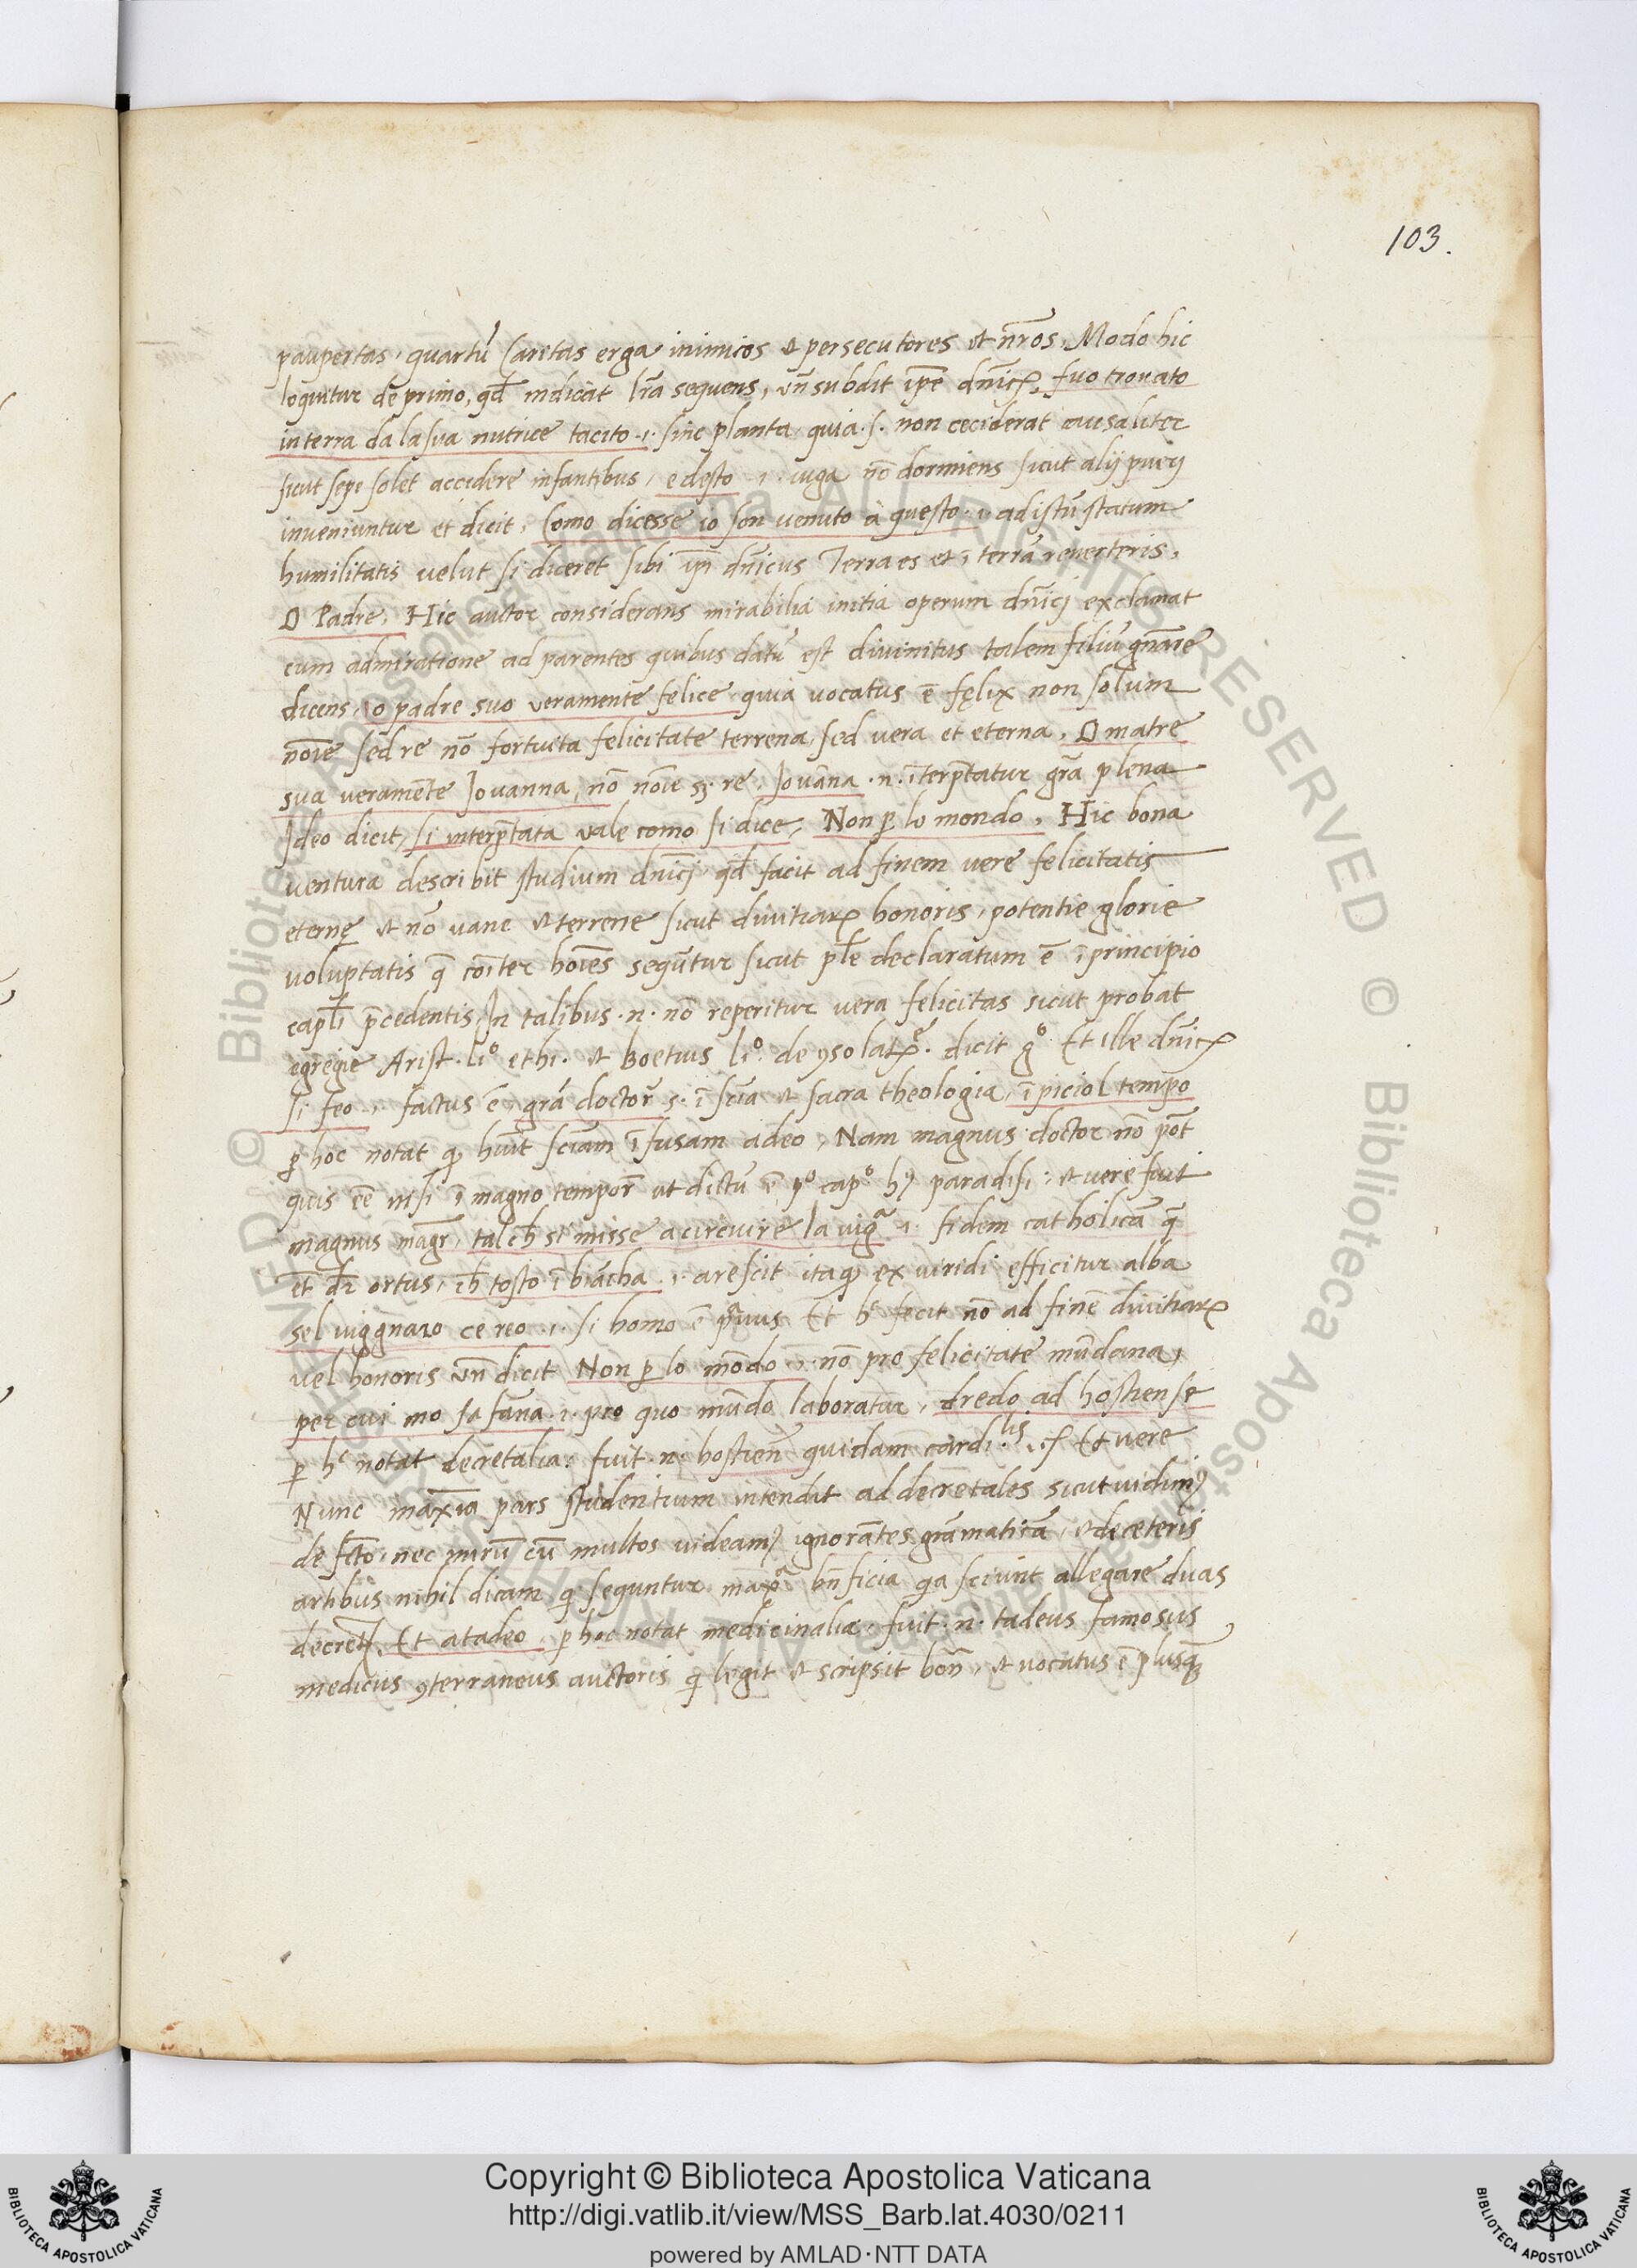 103.
paupertas, quartũ Caritas erga inimicos et persecutores et nr̃os, Modo hic
loquitur de primo, qđ indicat lr̃a sequens, vñ subdit ip̃e dñicꝰ, fuo trouato
in terra da la sua nutrice tacito .i. sine planta quia .s. non ceciderat causaliter
sicut sepe solet accidere infantibus, e desto .i. iuga nõ dormiens sicut alij pueri
inveniuntur et dicit, Como dicesse io son venuto à questo .i. ad istũ statum
humilitatis velut si diceret sibi ip̃i dñicus Terra es et ĩ terrã reverteris,
O Padre, Hic auctor considerans mirabilia initia operum dñici exclamat
cum admiratione ad parentes quibus datũ est divinitus talem filiũ gñare
dicens, o padre suo veramente felice quia vocatus ẽ fęlix non solum
nõie sed re nõ fortueta felicitate terrena, sed vera et eterna, O matre
sua veramẽte Jovanna, nõ nõie sꝫ re, Jovãna .n. ĩterp̃tatur gr̃a plena
Ideo dicit, si interp̃tata vale como si dice, Non ꝑ lo mondo, Hic bona
ventura describit studium dñici qđ facit ad finem vere felicitatis
eternę et nõ vane et terrene sicut divitiarꝝ honoris, potentie glorie
voluptatis q̃ cõiter hoĩes sequũtur sicut płe declaratum ẽ ĩ principio
capłi p̃cedentis, In talibus .n. nõ reperitur vera felicitas sicut probat
egregie Arist. liº ethi. et Boetius liº de ꝯsolatꝝẽ. dicit gº Et ille dñicꝰ
si feo .i. factus ẽ, grã doctor̃ s. ĩ scĩa et sacra theologia, ĩ piciol tempo
ꝑ hoc notat qꝫ huĩt sciam ĩfusam à deo, Nam magnus doctor nõ põt
quis ẽe nisi ĩ magno tempor̃ ut dictũ ẽ xº capº hꝰ paradisi: et vere fuit
magnus magr̃, tal cħ si misse a circuire la vigª .i. fidem catholicã q̃
et̃ dr̃ ortus, ĩħ tosto ĩbiãcha .i. arescit itaqꝫ ex viridi efficitur alba
sel viggnaro ce reo .i. si homo ẽ pªvus Et hᶜ fecit nõ ad finẽ divitiarꝝ
vel honoris vñ dicit Non ꝑ lo mõdo .i. nõ pro felicitate mũdana,
per cui mo sa fãna .i. pro quo mũdo laboratur, dredo ad hostiense
ꝑ hᶜ notat decretalia: fuit .n. hostieñ quidam cardi.ˡⁱˢ .. Et vere
Nunc maxĩa pars studentium intendit ad decretales sicut vidimꝰ
de fcto, nec mirũ cũ multos videamꝰ ignorãtes grãmaticã, et de ceteris
artibus nihil dicam qꝫ sequntur maxª bñficia qa sciunt allegare duas
decretꝭ, Et a tadeo, ꝑ hoc notat medicinalia, fuit .n. tadeus famosus
medicus ꝯterraneus auctoris qꝫ legit et scripsit boñ, et vocatus ẽ plusqꝫ
Copyright © Biblioteca Apostolica Vaticana
http://digi.vatlib.it/view/MSS_Barb.lat.4030/0211
powered by AMLAD·NTT DATA